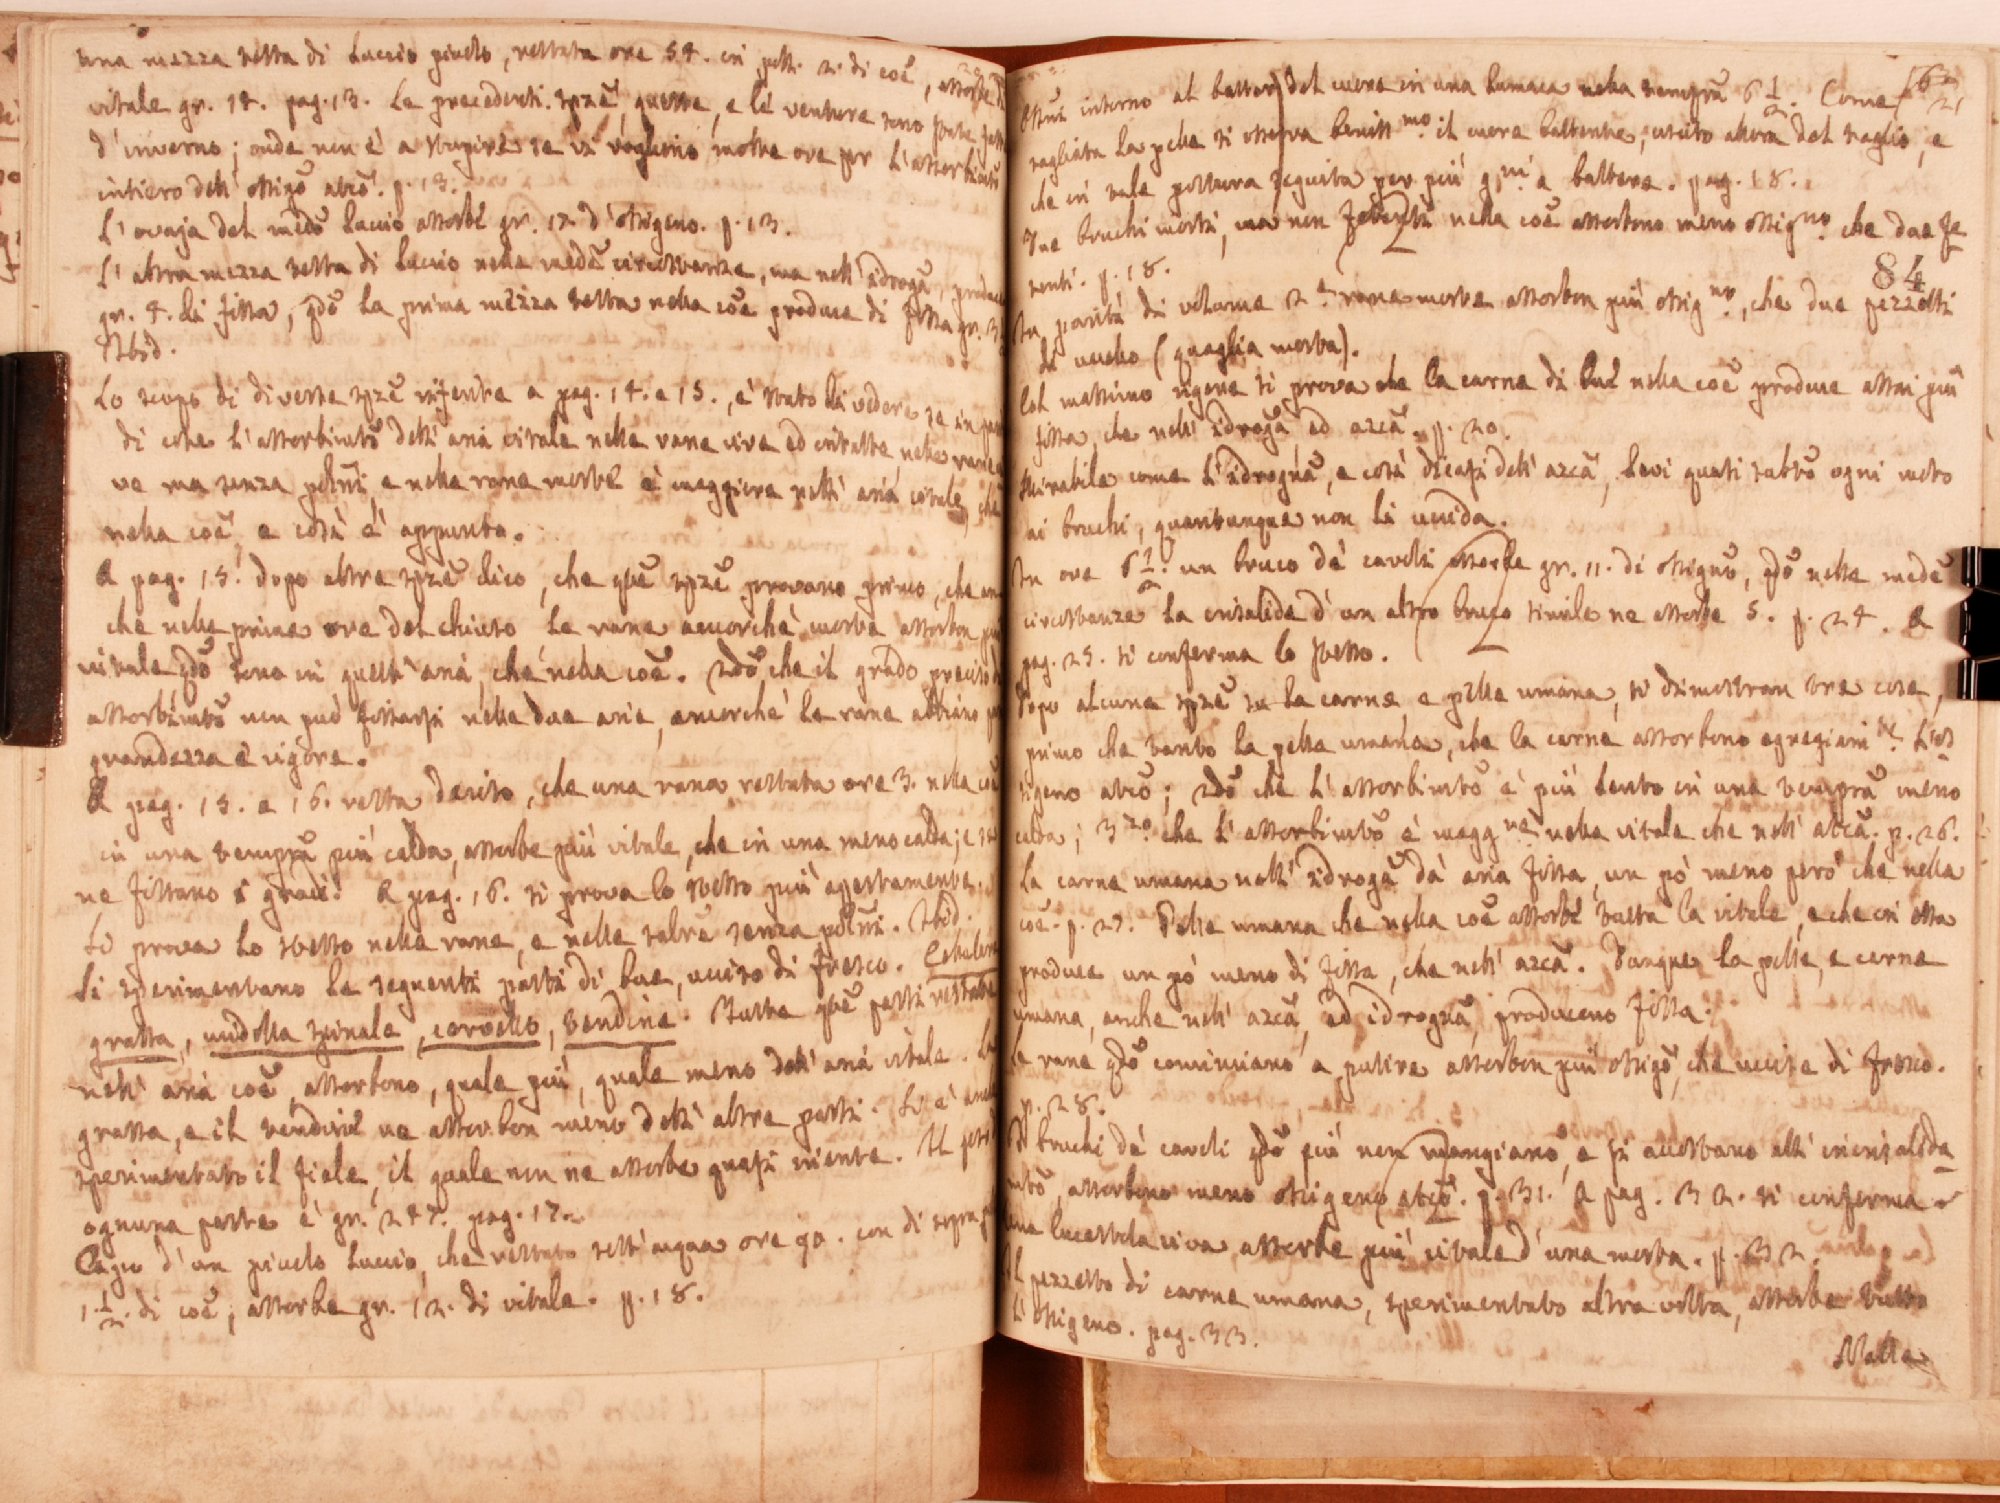 una mezza testa di Luccio picciolo, restata ore 54. in poll. 2. di coe, assorbe di
vitale gr. 14. pag. 13. Le precedenti spze, queste, e le venture sono state fatte
d'inverno; onde non è a stupire se vi vogliono molte ore per l'assorbimto
intiero dell' ossigo atco. p. 13.
L'ovaja del medo Luccio assorbe gr. 12. d'ossigeno. p. 13.
L'altra mezza testa di Luccio nelle mede circostanze, ma nell' idroga, produce
gr. 4. di fissa, qdo la prima mezza testa nella coe produce di fissa gr. 3
Ibid.
Lo scopo di diverse spze riferite a pag. 14. e 15., è stato di vedere se in pari
di cose l'assorbimto dell' aria vitale nelle rane vive ed intatte, nelle rane
ve ma senza polmi, e nelle rane morte è maggiore nell' aria vitale, che
nella coe, e così è appunto.
A pag. 15. dopo altre spze dico, che qte spze provano primo, che an
che nelle prime ore del chiuso le rane ancorchè morte assorbon più
vitale qdo sono in quest' aria, che nella coe. 2do che il grado preciso di
assorbimto non può fissarsi nelle due arie, ancorchè le rane abbiano pari
grandezza e vigore.
A pag. 15. e 16. resta deciso, che una rana restata ore 3. nella coe
in una tempra più calda, assorbe più vitale, che in una meno calda; e se
ne fissano i gradi. A pag. 16. si prova lo stesso più apertamente.
Si prova lo stesso nelle rane, e nelle salre senza polmi. Ibid.
Si sperimentano le seguenti parti di bue, ucciso di fresco.
grassa, midolla spinale, cervello, tendine. Tutte qte parti restate
nell' aria coe, assorbono, quale più, quale meno dell' aria vitale. La
grassa, e il tendine ne assorbon meno dell' altre parti. Si è anche
sperimentato il fiele, il quale non ne assorbe quasi niente. Il peso
ognuna parte è gr. 247. pag. 17.
Capo d'un picciolo Luccio, che restato sott' acqua ore 90. con di sopra
1. 1/2. di coe, assorbe gr. 12. di vitale. p. 18.
intorno al batter del cuore in una lumaca nella tempra 6 1/2. Come
tagliata la pelle si osserva beniss mo il cuore battente, uscito allora dal taglio, e
che in tale positura seguita per più gni a battere. pag. 18.
Due bruchi morti, ma non fetenti nella coe assorbono meno ossig no che due fe
tenti. p. 18.
84
In parità di volume 2 e rane morte assorbon più ossig no, che due pezzetti
di uccello (quaglia morta).
Col massimo rigore si prova che la carne di bue nella coe produce assai più
fissa che nell' idroga ed azca. p. 20.
Mirabile come l'idrogna, e così dicasi dell' azca, levi quasi subito ogni moto
ai bruchi, quantunque non li uccida.
In ore 6 1/2. un bruco de' cavoli assorbe gr. 11. di ossigno, qdo nelle mede
circostanze la crisalide d'un altro bruco simile ne assorbe 5. p. 24. A
pag. 25. si conferma lo stesso.
Dopo alcune spze su la carne, e pelle umana, si dimostran tre cose,
primo che tanto la pelle umana, che la carne assorbono egregiam te l'os
sigeno atco; 2do che l'assorbimto è più lento in una tempra meno
calda; 3 zo che l'assorbimto è magg re nella vitale che nell' atca. p. 26.
La carne umana nell' idroga dà aria fissa, un pò meno però che nella
coe. p. 27. Pelle umana che nella coe assorbe tutta la vitale, e che in essa
produce un pò meno di fissa, che nell' azca. Dunque la pelle, e carne
umana, anche nell' azca, ed idrogna, producono fissa.
Le rane qdo cominciano a putire assorbon più ossigo, che uccise di fresco.
p. 28.
I bruchi de' cavoli qdo più non mangiano, e si accostano all' incrisalida
mto, assorbono meno ossigeno atco. p. 31. A pag. 32. si conferma.
una lucertola viva assorbe più vitale d'una morta. p. 32.
Il pezzetto di carne umana, sperimentato altra volta, assorbe tutto
l'ossigeno. pag. 33.
Nella